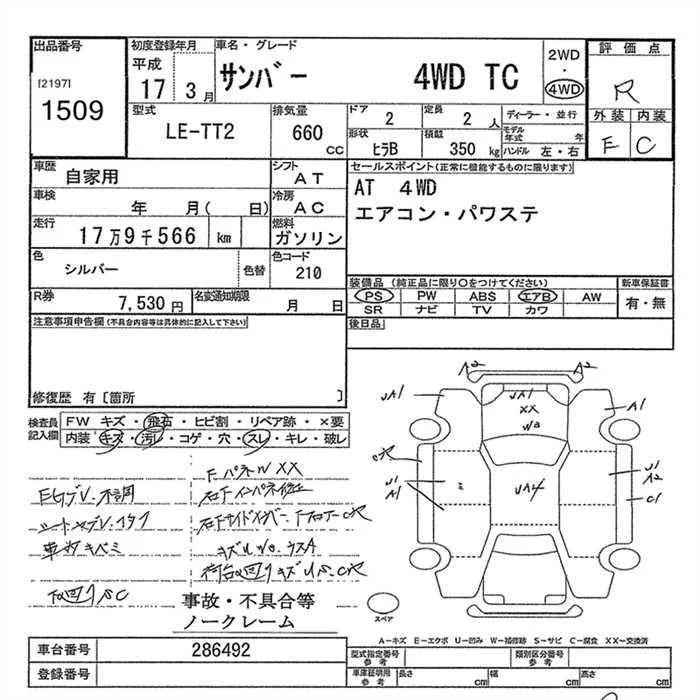 出品番号
[2197]
1509
初度登録年月
平成
17 3月
車名・グレード
サンバー 4WD TC
2WD
・
4WD
評価点
R
外装 内装
E C
型式
LE-TT2
排気量
660
cc
ドア
2
定員
2 人
形状
ヒラB
積載
350 kg
ディーラー・並行
モデル年式 年
ハンドル 左・右
車歴
自家用
シフト
AT
車検
年 月( 日)
冷房
AC
走行
17万9千566 km
燃料
ガソリン
色
シルバー
色替
色コード
210
R券
7,530円
名変通知期限
月 日
セールスポイント(正常に機能するものに限ります)
AT 4WD
エアコン・パワステ
装備品(純正品に限り○をつけてください)
PS PW ABS エアB AW
SR ナビ TV カワ
新車保証書
有・無
後日品
注意事項申告欄(不具合内容等は具体的に記入して下さい)
修復歴 有[箇所 ]
検査員
記入欄
FW キズ・飛石・ヒビ割・リペア跡・×要
内装・キズ・汚レ・コゲ・穴・スレ・キレ・破レ
FパネルXX
事故・不具合等
ノークレーム
A2
A2
UA1
A1
XX
UA4
U1
A1
U1
A2
C1
スペア
A-キズ E-エクボ U-凹み W-補修跡 S-サビ C-腐食 XX-交換済
車台番号
286492
登録番号
型式指定番号
参考
類別区分番号
参考
車庫証明用
参考
長さ cm
幅 cm
高さ cm